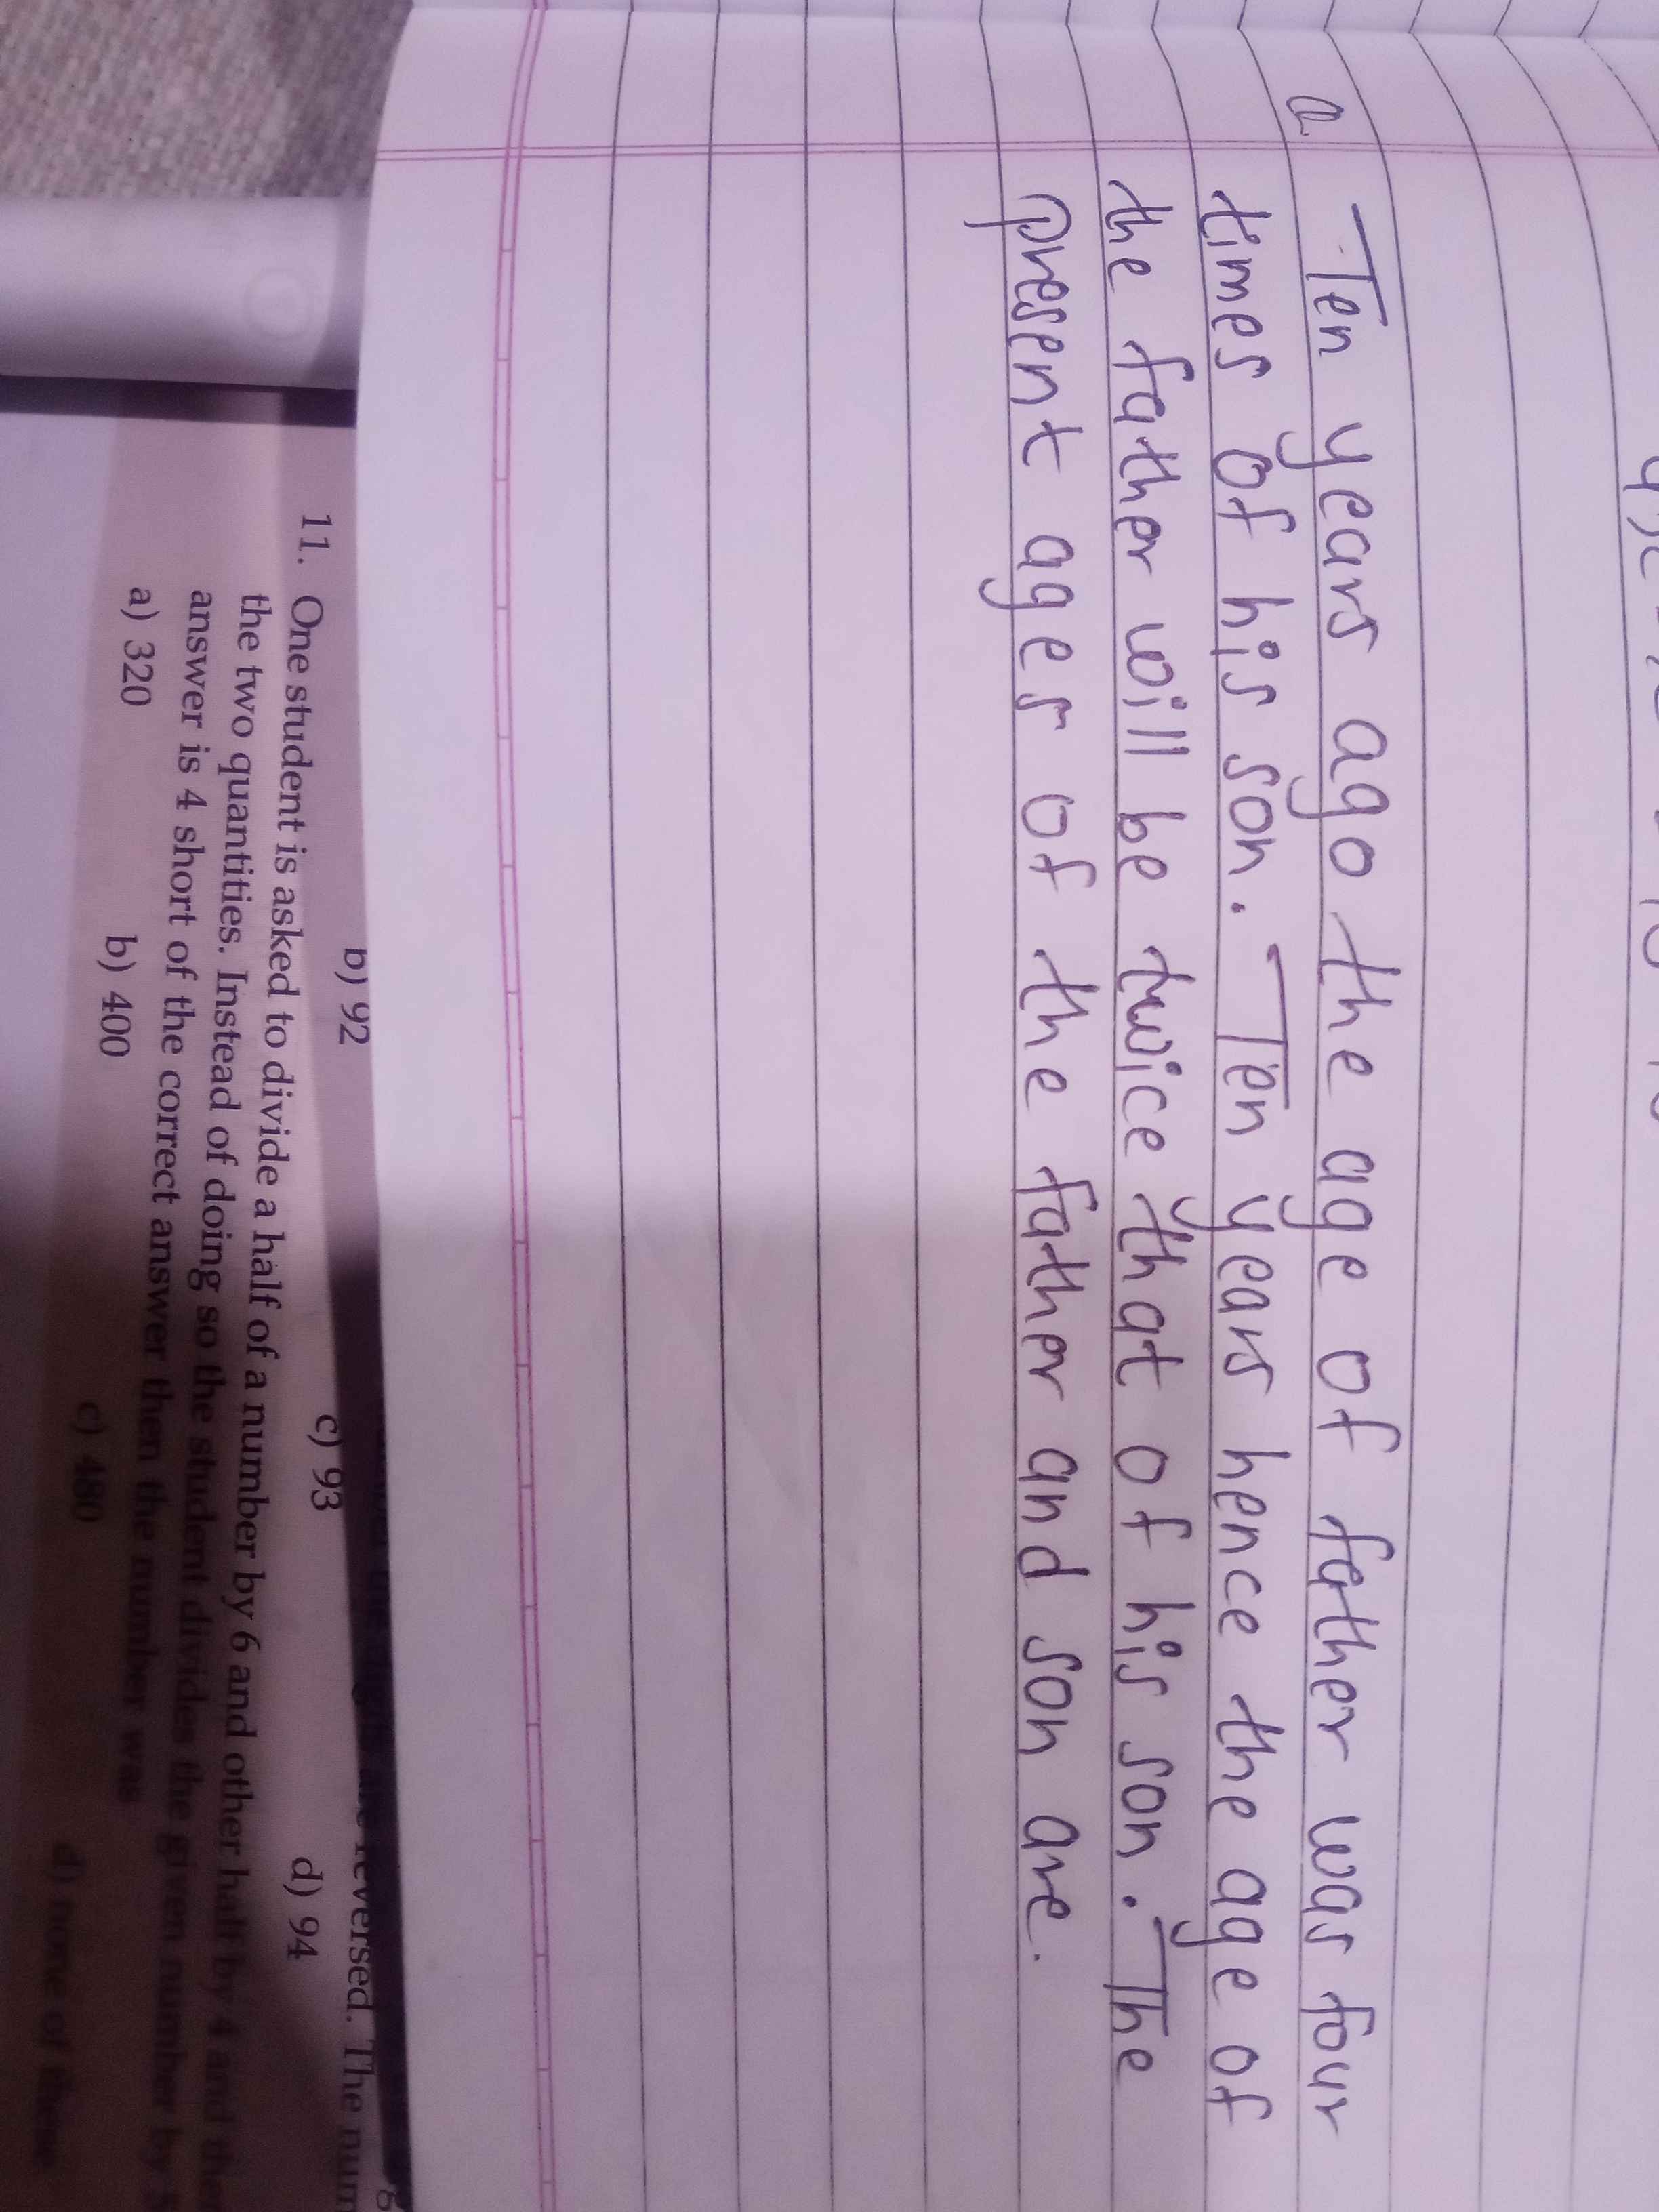 Q Ten years ago the age of father was four
times of his son. Ten years hence the age of
the father will be twice that of his son. The
present ages of the father and son are.
reversed. The num
b) 92 c) 93 d) 94
11. One student is asked to divide a half of a number by 6 and other half by 4 and then
the two quantities. Instead of doing so the student divides the given number by 5
answer is 4 short of the correct answer then the number was
a) 320 b) 400 c) 480 d) none of these